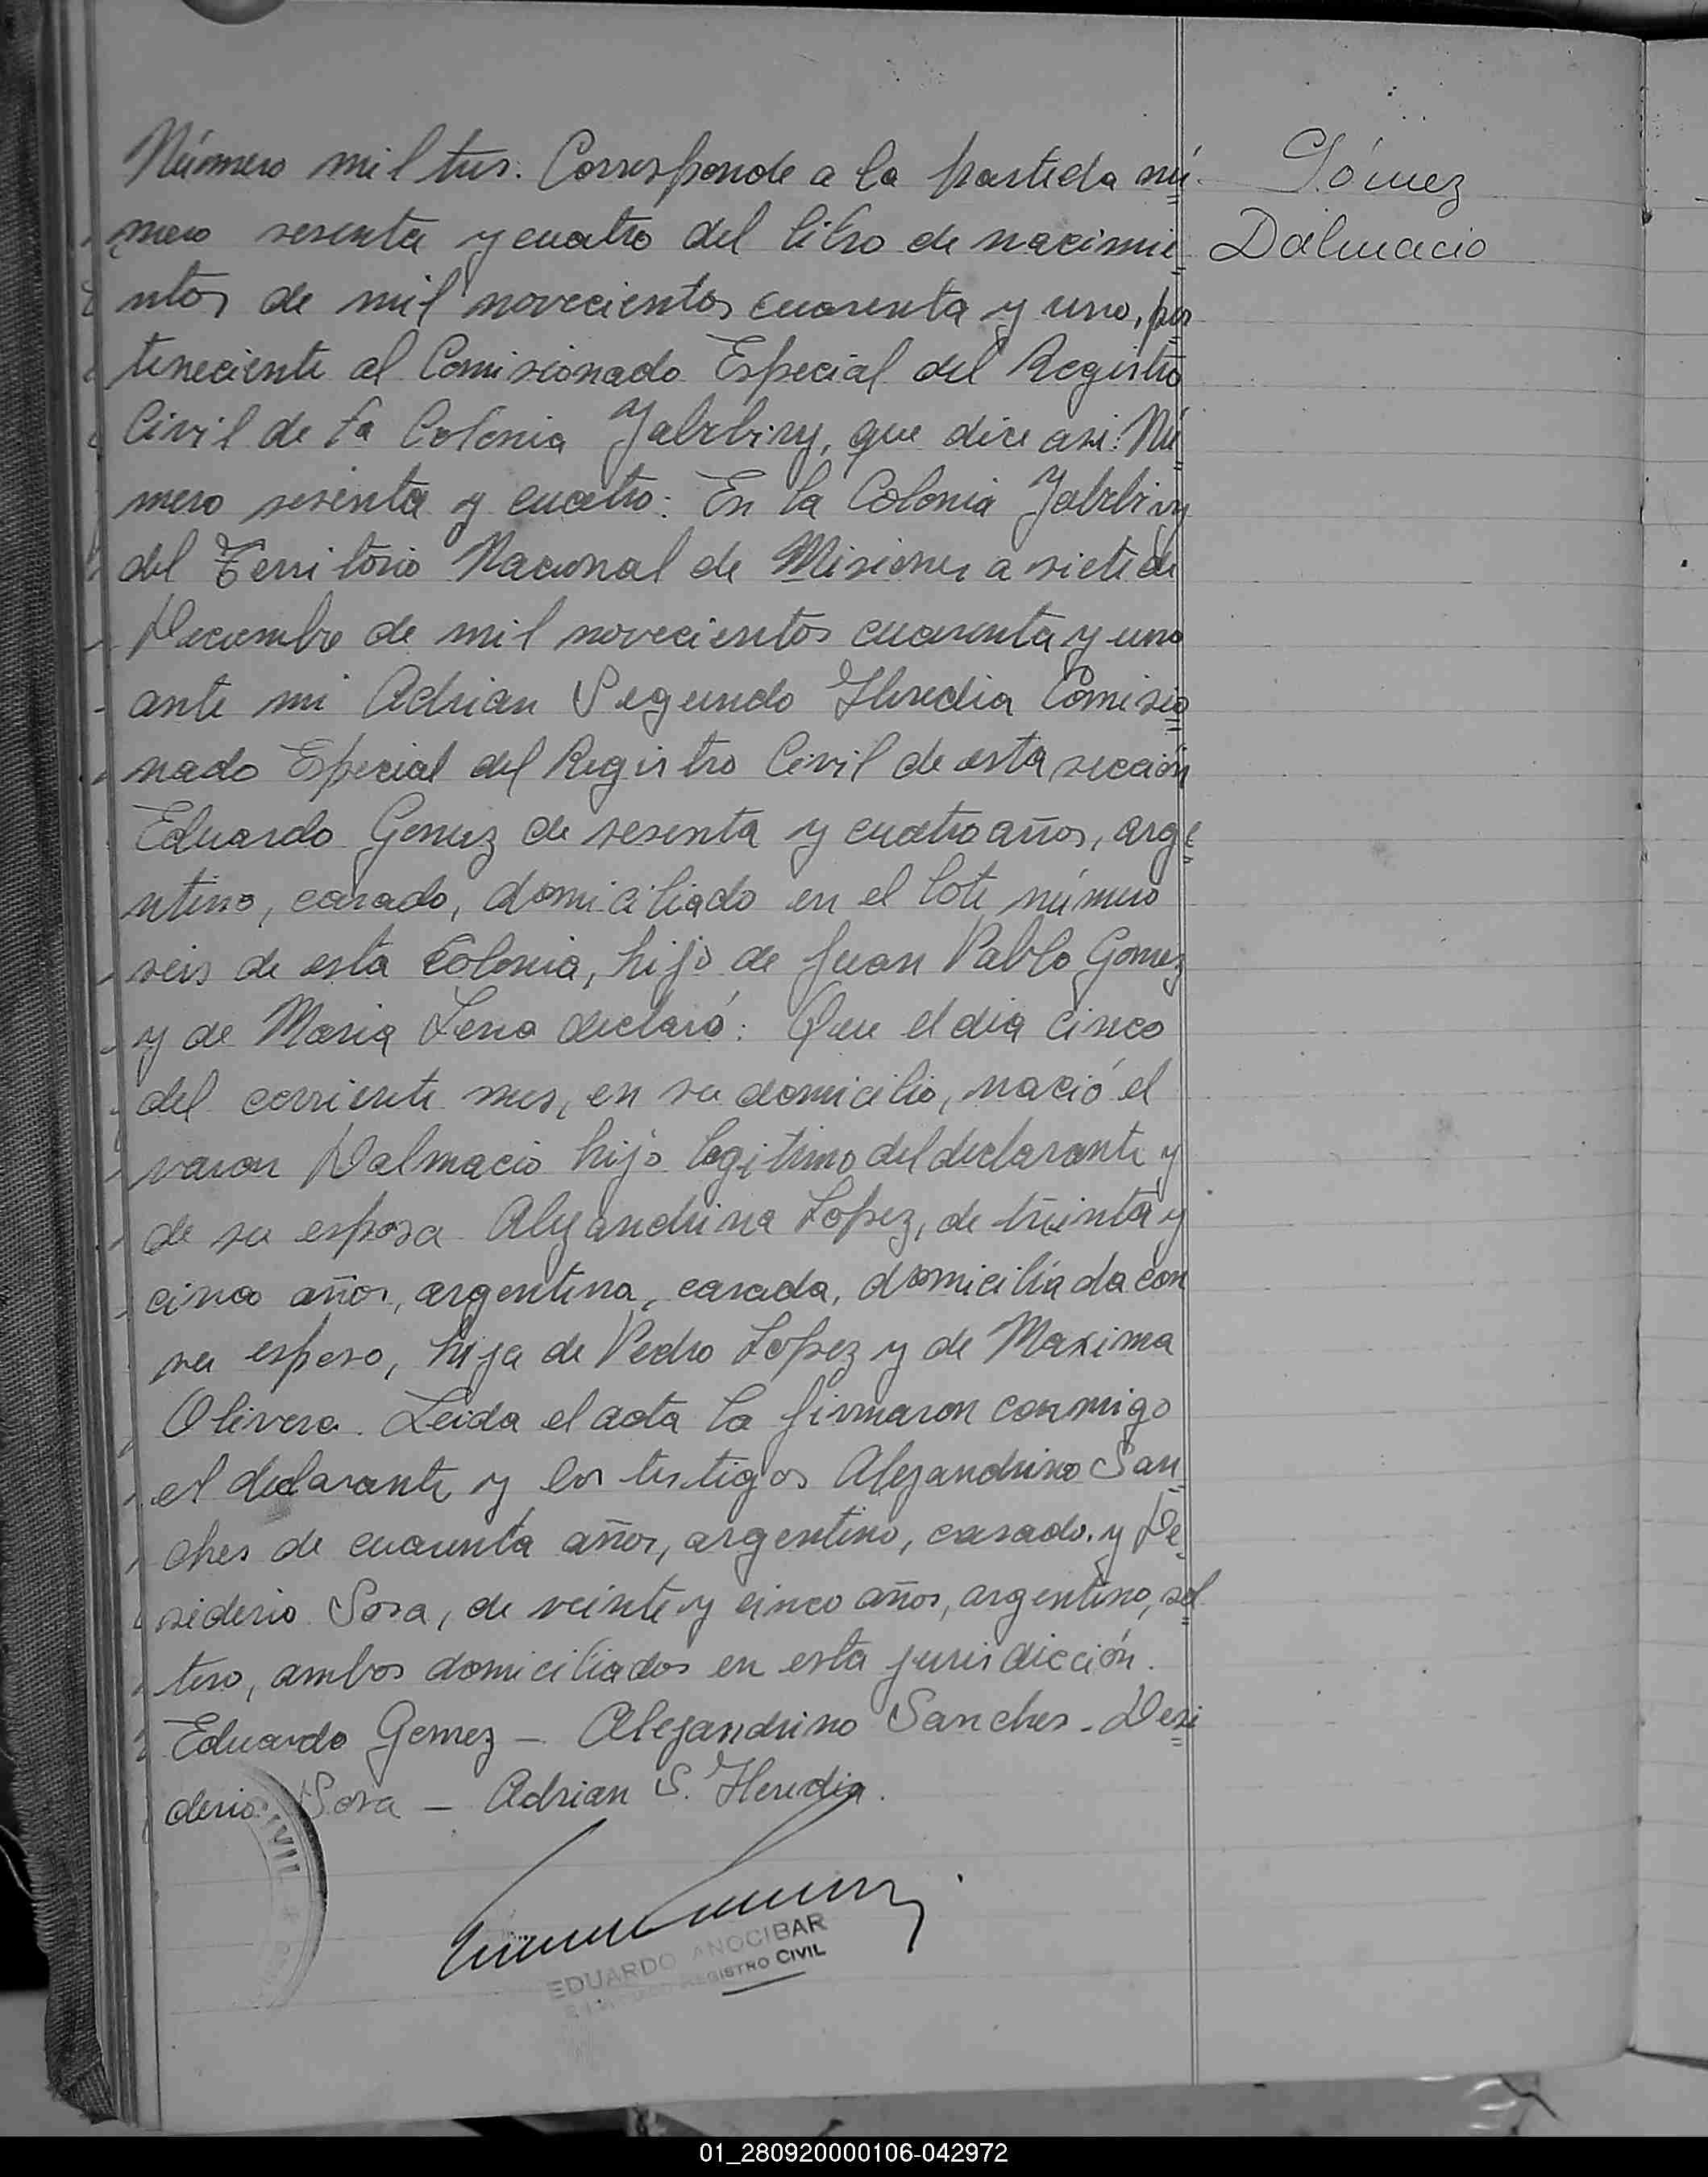 Número mil tres. Corresponde a la partida nú-
Gómez
mero sesenta y cuatro del libro de nacimie
Dalmacio
ntos de mil novecientos cuarenta y uno, per
teneciente al Comisionado Especial del Registro
Civil de la Colonia Yabebiry, que dice asi: Nú
mero sesenta y cuatro: En la Colonia Yabebiry
del Territorio Nacional de Misiones a siete de
Diciembre de mil novecientos cuarenta y uno
ante mi Adrian Segundo Heredia Comisio
nado Especial del Registro Civil de esta sección
Eduardo Gomez de sesenta y cuatro años, arge
ntino, casado, domiciliado en el lote número
seis de esta Colonia, hijo de Juan Pablo Gomez
y de Maria declaró: Que el dia cinco
del corriente mes, en su domicilio, nació el
varon Dalmacio hijo legitimo del declarante y
de su esposa Alejandrina Lopez, de treinta y
cinco años, argentina, casada, domiciliada con
su esposo, hija de Pedro Lopez y de Maxima
Olivera. Leida el acta la firmaron conmigo
el declarante y los testigos Alejandrino San
ches de cuarenta años, argentino, casado. y De
siderio Sosa, de veinte y cinco años, argentino, sol
tero, ambos domiciliados en esta jurisdicción.
Eduardo Gomez - Alejandrino Sanches - Desi
derio Sosa - Adrian S. Heredia.
CIVIL
EDUARDO ANOCIBAR
REGISTRO CIVIL
01_280920000106-042972